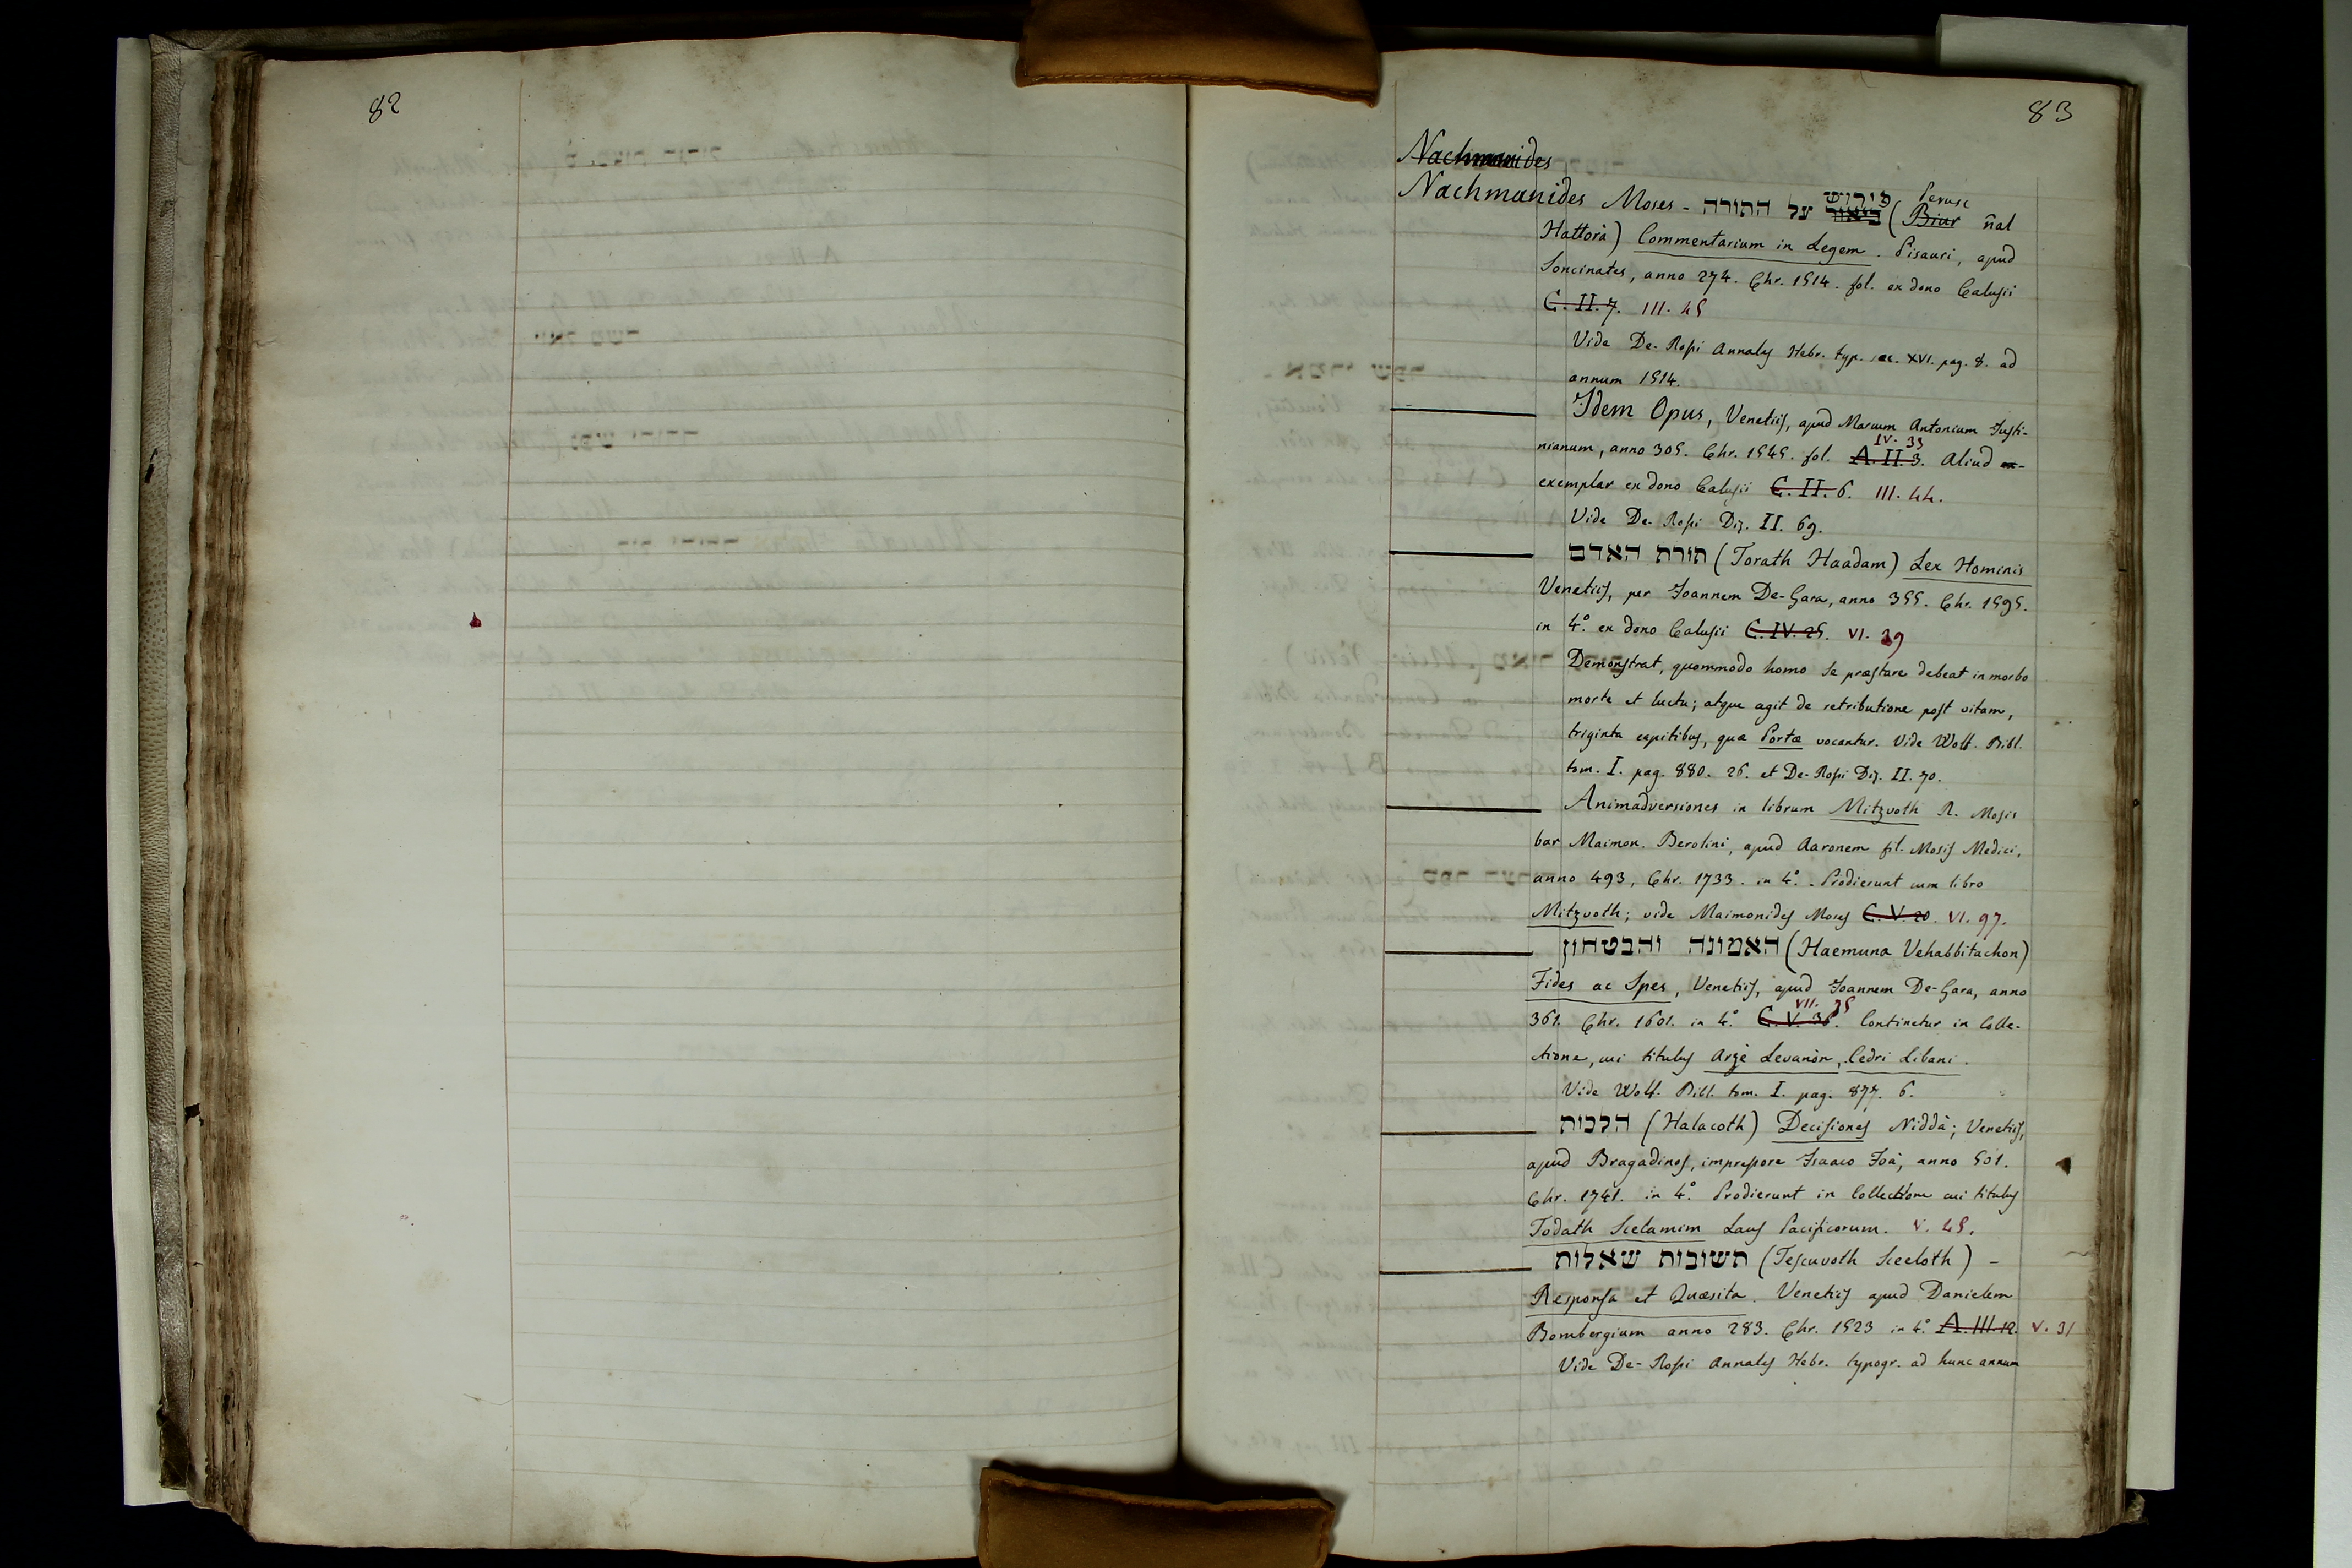 82
83
Nachmanides
Nachmanides Moses - פירוש ביאור על התורה (Perusc Biur ñal
Hattorà) Commentarium in Legem. Pisauri, apud
Soncinates, anno 274. Chr. 1514. fol. ex dono Calusii
C. II. 7. III. 45
Vide De-Rossi Annales Hebr. typ. sec. XVI. pag. 8. ad
annum 1514.
Idem Opus, Venetiis, apud Marcum Antonium Justi-
nianum, anno 305. Chr. 1545. fol. A. II. 3. IV. 33 Aliud ex-
exemplar ex dono Calusii C. II. 6. III. 44.
Vide De-Rossi Diz. II. 69.
תורת האדם (Torath Haadam) Lex Hominis
Venetiis, per Joannem De-Gara, anno 355. Chr. 1595.
in 4.° ex dono Calusii C. IV. 25. VI. 39
Demonstrat, quommodo homo se præstare debeat in morbo
morte et luctu; atque agit de retributione post vitam,
triginta capitibus, quæ Portæ vocantur. Vide Wolf. Bibl.
tom. I. pag. 880. 26. et De-Rossi Diz. II. 70.
Animadversiones in librum Mitzvoth R. Mosis
bar Maimon. Berolini, apud Aaronem fil. Mosis Medici,
anno 493, Chr. 1733. in 4.° Prodierunt cum libro
Mitzvoth; vide Maimonides Moses C. V. 20. VI. 97.
האמונה והבטחון (Haemuna Vehabbitachon)
Fides ac Spes, Venetiis, apud Joannem De-Gara, anno
361. Chr. 1601. in 4.° C. V. 36. VII. 35 Continetur in Colle-
ctione, cui titulus Arzè Levanòn, Cedri Libani.
Vide Wolf. Bibl. tom. I. pag. 877. 6.
הלכות (Halacoth) Decisiones Niddà; Venetiis,
apud Bragadinos, impressore Isaaco Foà, anno 501.
Chr. 1741. in 4.° Prodierunt in Collectione cui titulus
Todath Scelamim Laus Pacificorum. V. 45.
תשובות שאלות (Tescuvoth Sceeloth) -
Responsa et Quæsita. Venetiis apud Danielem
Bombergium anno 283. Chr. 1523 in 4.° A. III. 12. V. 31
Vide De-Rossi Annales Hebr. typogr. ad hunc annum